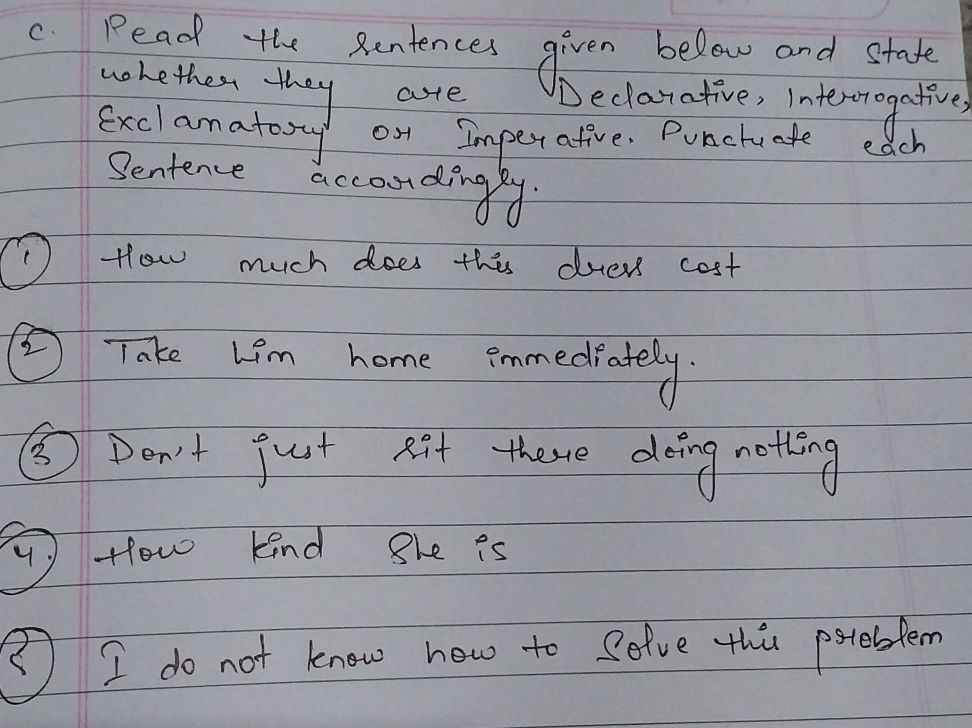 C. Read the sentences given below and state
whether they are Declarative, Interrogative,
Exclamatory or Imperative. Punctuate each
Sentence accordingly.
1 How much does this dress cost
2 Take him home immediately.
3 Don't just sit there doing nothing
4. How kind She is
5 I do not know how to Solve this problem